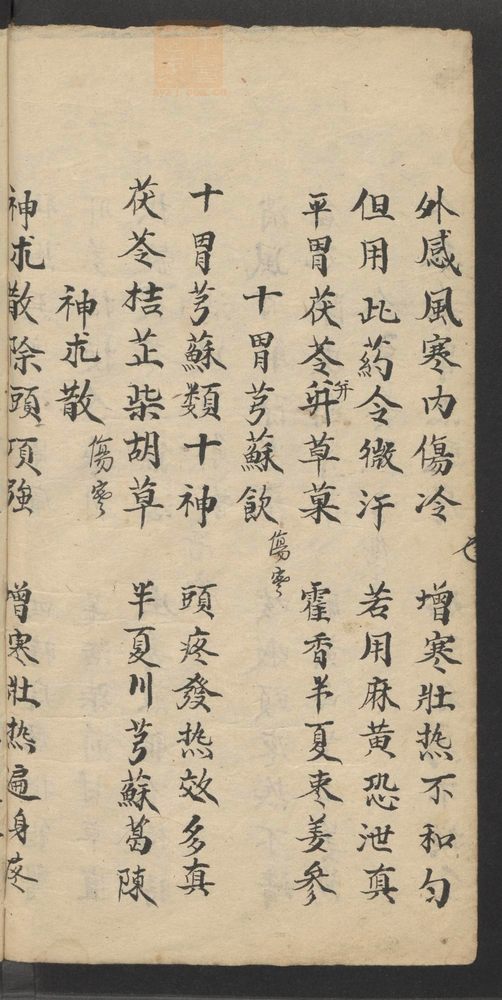 外感風寒内傷冷　增寒壯热不和勻
但用此药令微汗　若用麻黄恐泄真
平胃茯苓并草菓　霍香半夏枣姜參
十胃芎蘇飲　傷寒
十胃芎蘇類十神　頭疼發热效多真
茯苓桔芷柴胡草　半夏川芎蘇葛陳
神术散　傷寒
神术散除頭項強　增寒壯热遍身疼